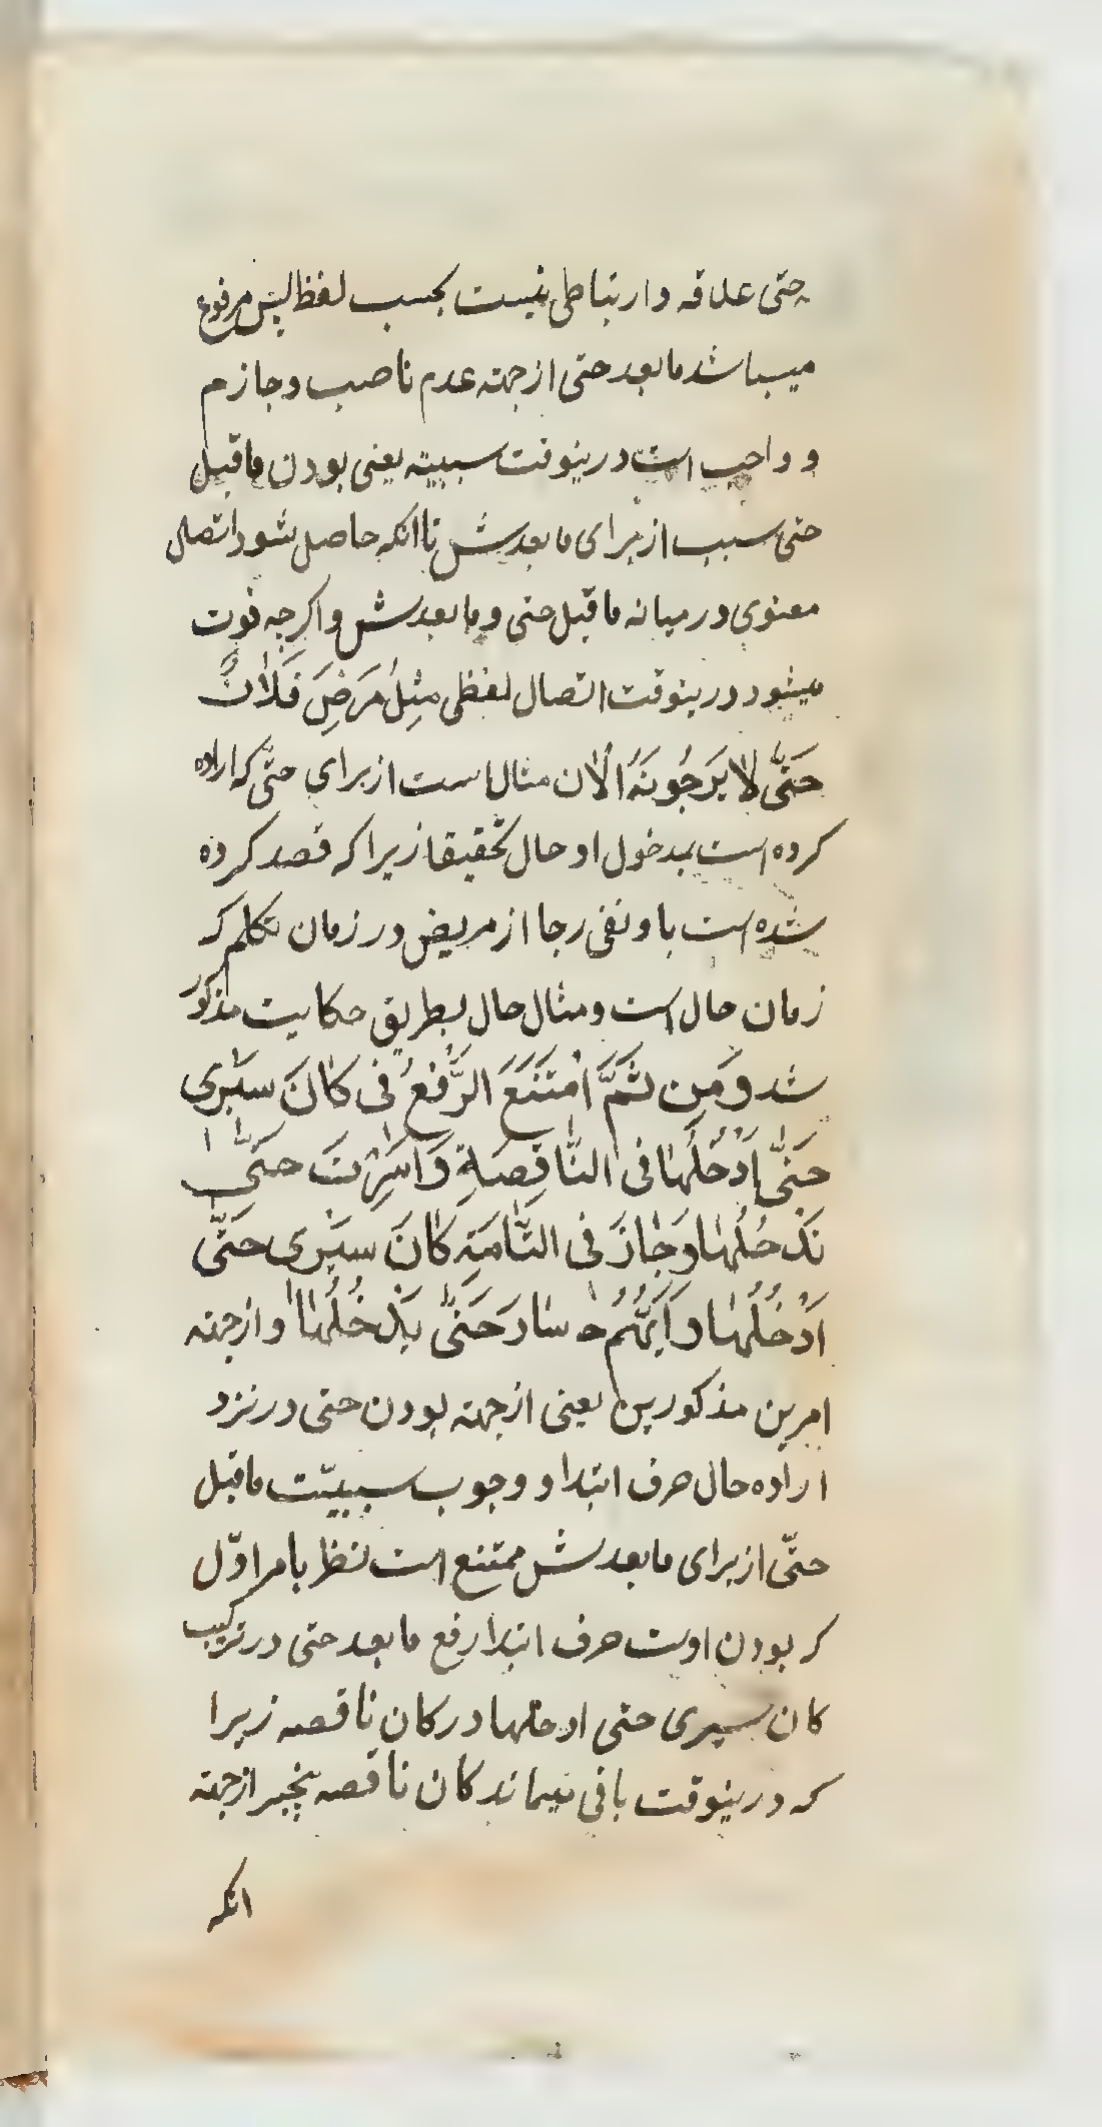 حتی علاقه و ارتباطی نیست بحسب لفظ پس مرفوع
میباشد ما بعد حتی از جهته عدم ناصب و جازم
و واجب است درینوقت سببیته یعنی بودن ما قبل
حتی سبب از برای ما بعدش تا انکه حاصل شود اتصال
معنوی در میانه ما قبل حتی و ما بعدش و اکرچه فوت
میشود درینوقت اتصال لفظی مِثلُ مَرَضِ فَلَانٌ
حَتّٰی لَا یَرجُونَهُ الْاٰن مثال است از برای حتّی که اراده
کرده است بمدخول او حال تحقیقا زیرا که قصد کرده
شده است باو نفی رجا از مریض در زمان تکلم کر
زمان حال است و مثال حال بطریق حکایت مذکور
شد وَ مِن ثَمَّ امْتَنَعَ الرَّفْعُ فی کانَ سَیْرِی
حَتّٰی اَدْخُلُهٰا فی النّاقِصَةِ وَ اَسِرْتَ حَتّٰی
تَدخُلُهٰا وَ جٰازَ فی التّامَّةِ کٰانَ سَیْرِی حَتّٰی
اَدْخُلُهٰا وَ اَیُّهُمُ سٰارَ حَتّٰی یَدْخُلُهٰا و از جهته
امرین مذکورین یعنی از جهته بودن حتی در نزد
اراده حال حرف ابتدا و وجوب سببیّت ما قبل
حتّی از برای ما بعدش ممتنع است نظر بامر اوّل
کر بودن اوست حرف ابتدا رفع ما بعد حتی در ترکیب
کان سیری حتی ادخلها در کان ناقصه زیرا
که درینوقت باقی میماند کان ناقصه بیخبر از جهته
انکه